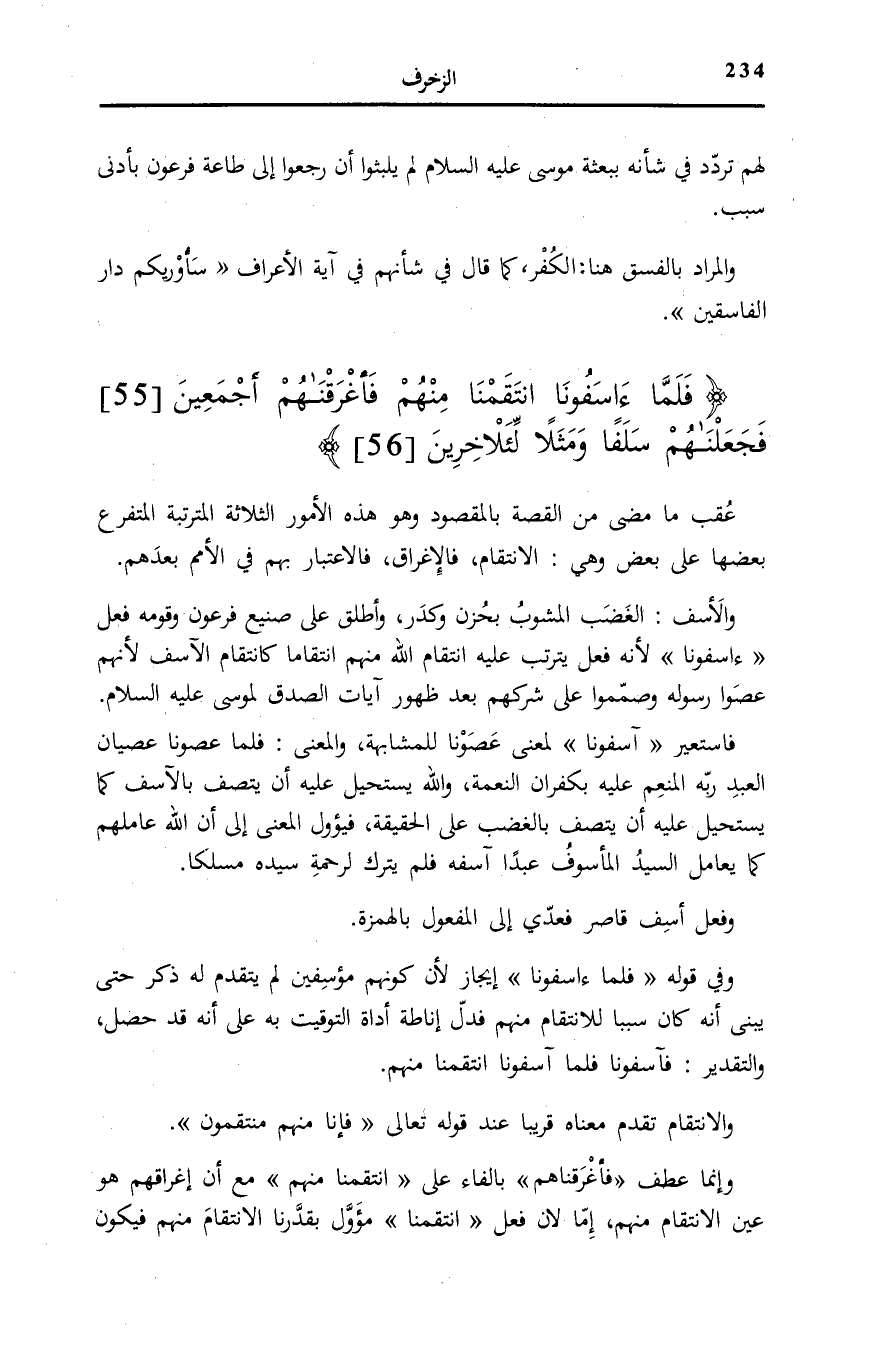 234
الزخرف
لهم تردّد في شأنه ببعثة موسى عليه السلام لم يلبثوا أن رجعوا إلى طاعة فرعون بأدنى
سبب.
والمراد بالفسق هنا: الكُفْر، كما قال في شأنهم في آية الأعراف « سَأُوْرِيكم دار
الفاسقين ».
﴿ فَلَمَّا ءَاسَفُونَا انتَقَمْنَا مِنْهُمْ فَأَغْرَقْنَـٰهُمْ أَجْمَعِينَ [55]
فَجَعَلْنَـٰهُمْ سَلَفًا وَمَثَلًا لِّلْأَخِرِينَ [56] ﴾
عُقب ما مضى من القصة بالمقصود وهو هذه الأمور الثلاثة المترتبة المتفرع
بعضها على بعض وهي : الانتقام، فالإغراق، فالاعتبار بهم في الأمم بعدَهم.
والَأسف : الغَضَب المشوبُ بحُزن وكدَر، وأطلق على صنيع فرعون وقومه فعل
« ءاسفونا » لأنه فعل يترتب عليه انتقام الله منهم انتقاما كانتقام الآسف لأنهم
عصَوا رسوله وصمّموا على شركهم بعد ظهور آيات الصدق لموسى عليه السلام.
فاستعير « آسفونا » لمعنى عَصَوْنا للمشابهة، والمعنى : فلما عصونا عصيان
العبدِ ربّه المنعِم عليه بكفران النعمة، والله يستحيل عليه أن يتصف بالآسف كما
يستحيل عليه أن يتصف بالغضب على الحقيقة، فيؤول المعنى إلى أن الله عاملهم
كما يعامل السيدُ المأسوفُ عبدًا آسفه فلم يترك لرحمةِ سيده مسلكا.
وفعل أسِف قاصر فعدّي إلى المفعول بالهمزة.
وفي قوله « فلما ءاسفونا » إيجاز لأن كونهم مؤسِفين لم يتقدم له ذكر حتى
يبنى أنه كان سببا للانتقام منهم فدلّ إناطة أداة التوقيت به على أنه قد حصل،
والتقدير : فآسفونا فلما آسفونا انتقمنا منهم.
والانتقام تقدم معناه قريبا عند قوله تعالى « فإنا منهم منتقمون ».
وإنما عطف «فأغْرَقناهم» بالفاء على « انتقمنا منهم » مع أن إغراقهم هو
عين الانتقام منهم، إمّا لان فعل « انتقمنا » مؤَوَّل بقدَّرنا الانتقامَ منهم فيكون